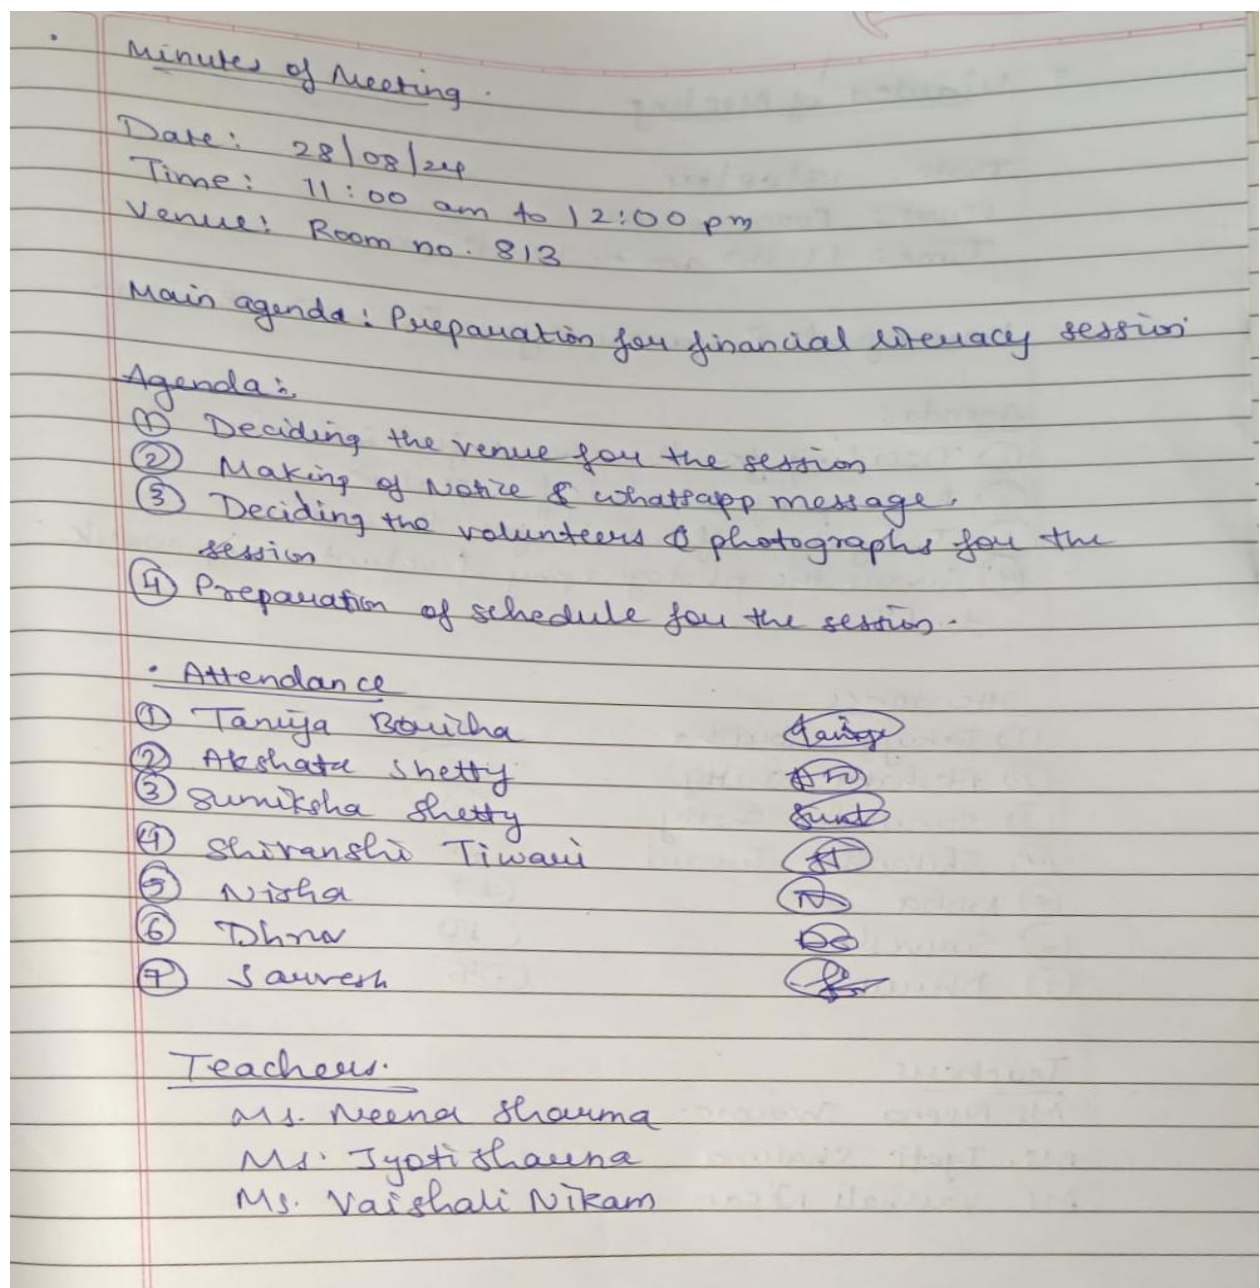 Minutes of Meeting.
Date: 28/08/24
Time: 11:00 am to 12:00 pm
Venue: Room no. 813
Main agenda: Preparation for financial literacy session
Agenda:
① Deciding the venue for the session
② Making of Notice & whatsapp message.
③ Deciding the volunteers & photographs for the
session
④ Preparation of schedule for the session.
• Attendance
① Tanuja
② Akshata Shetty
③ Sumiksha Shetty
④ Shivanshi Tiwari
⑤ Nisha
⑥
⑦ Sarvesh
Teachers.
Ms. Neena Sharma
Ms. Jyoti Sharma
Ms. Vaishali Nikam